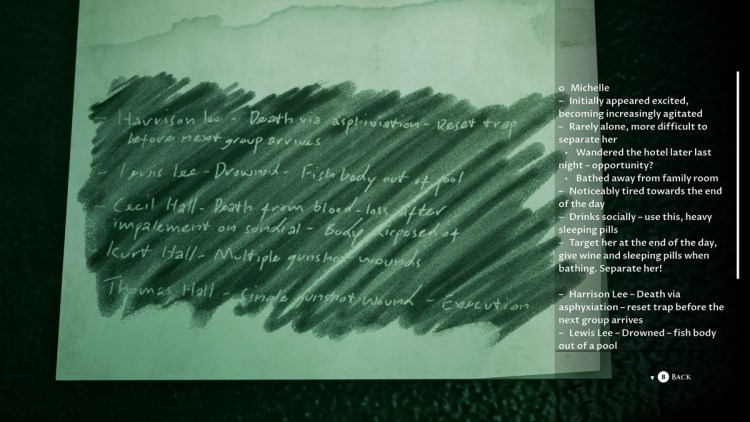 - Harrison lee - Death via asphixiation - Reset trap
before next group arrives
- Lewis Lee - Drowned - Fish body out of pool
- Cecil Hall - Death from blood-loss after
impalement on sundial - Body disposed of
Kurt Hall - Multiple gunshot wounds
Thomas Hall - Single gunshot wound - Execution
o Michelle
– Initially appeared excited,
becoming increasingly agitated
– Rarely alone, more difficult to
separate her
- Wandered the hotel later last
night – opportunity?
- Bathed away from family room
– Noticeably tired towards the end
of the day
– Drinks socially – use this, heavy
sleeping pills
– Target her at the end of the day,
give wine and sleeping pills when
bathing. Separate her!
– Harrison Lee – Death via
asphyxiation – reset trap before the
next group arrives
– Lewis Lee – Drowned – fish body
out of a pool
B BACK